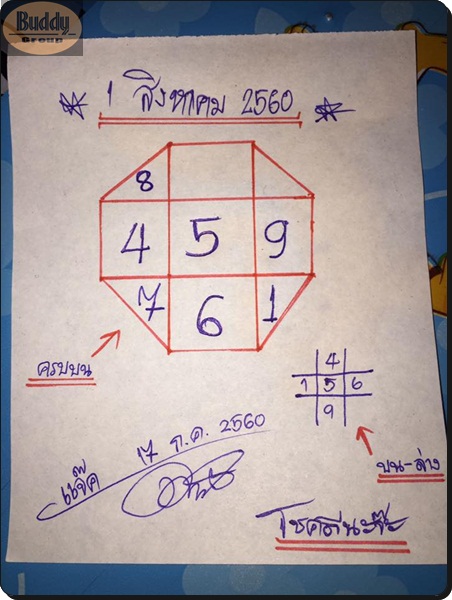 Buddy
Group
1 สิงหาคม 2560
8
4 5 9
7 6 1
ครบบน
4
1 5 6
9
บน-ล่าง
แจ๊ค 17 ก.ค. 2560
โชคดีนะจ๊ะ